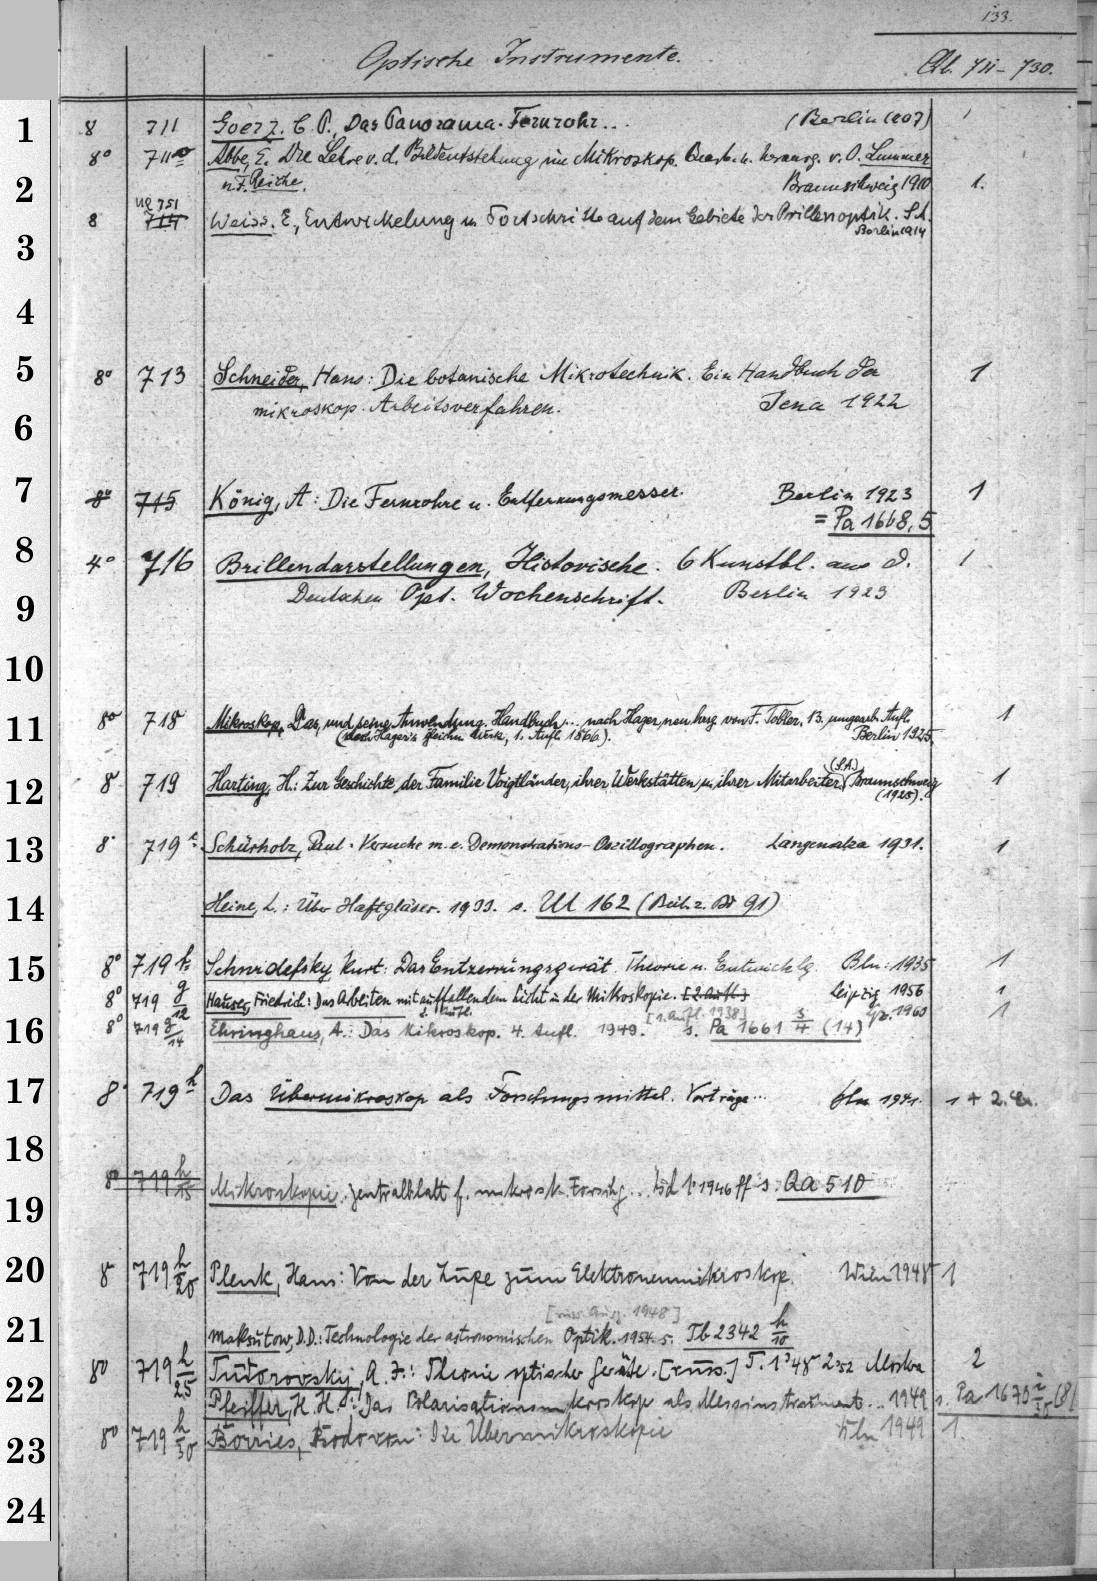 133.
Optische Instrumente. Ub. 711 – 730.
1 8 711 Goerz, C. P., Das Panorama-Fernrohr... (Berlin 1907) 1
8° 711 a Abbe, E. Die Lehre v. d. Bildentstehung im Mikroskop. Bearb. u. herausg. v. O. Lummer
2 u. F. Reiche. Braunschweig 1910 1.
Ug 751
8 714 Weiss. E., Entwickelung u. Fortschritte auf dem Gebiete der Brillenoptik. SA.
3 Berlin 1914
4
5 8° 713 Schneider, Hans: Die botanische Mikrotechnik. Ein Handbuch der 1
6 mikroskop. Arbeitsverfahren. Jena 1922
7 8° 715 König, A: Die Fernrohre u. Entfernungsmesser. Berlin 1923 1
= Pa 1668, 5
8 4° 716 Brillendarstellungen, Historische. 6 Kunstbl. aus d. 1
9 Deutschen Opt. Wochenschrift. Berlin 1923
10
11 8° 718 Mikroskop, Das, und seine Anwendung. Handbuch... nach Hager, neu hrsg von F. Tobler, 13. umgearb. Aufl. 1
Berlin 1925.
12 8 719 Harting, H.: Zur Geschichte der Familie Voigtländer, ihrer Werkstätten u. ihrer Mitarbeiter. (SA) Braunschweig 1
(1925).
13 8° 719 Schürholz, Paul: Versuche m. e. Demonstrations-Oszillographen. Langensalza 1931. 1
14 Heine, L.: Über Haftgläser. 1933. s. Ul 162 (Beil. z. Bd 91)
15 8° 719 Schwidefsky Kurt: Das Entzerrungsgerät. Theorie u. Entwicklg. Bln: 1935 1
8° 719 g/12 Hauser, Friedrich: Das Arbeiten mit auffallendem Licht in der Mikroskopie. [2. Aufl.] Leipzig 1956 1
2. Aufl. [1. Aufl. 1938] Lpz. 1960 1
16 8° 719 g/14 Ehringhaus, A.: Das Mikroskop. 4. Aufl. 1949. s. Pa 1661 s/4 (14)
17 8° 719 h Das Übermikroskop als Forschungsmittel. Vorträge... Bln 1941. 1 + 2. Ex.
18
8° 719 h/15 Mikroskopie. Zentralblatt f. mikrosk. Forschg... Bd 1. 1946 ff s. Qa 510
19
20 8° 719 h/20 Plenk, Hans: Von der Lupe zum Elektronenmikroskop. Wien 1948 1
[russ. Ausg. 1948]
21 Maksutow, D. D.: Technologie der astronomischen Optik. 1954. s. Tb 2342 h/10
8° 719 h/25 Tudorovskij, A. J.: Theorie optischer Geräte. [russ.] T. 1² 48 2² 52 Moskva 2
22 Pfeiffer, H. H.: Das Polarisationsmikroskop als Messinstrument... 1949 s. Pa 1675 i/50 (8)
23 8° 719 h/30 Borries, Bodo von: Die Übermikroskopie Bln 1949 1.
24